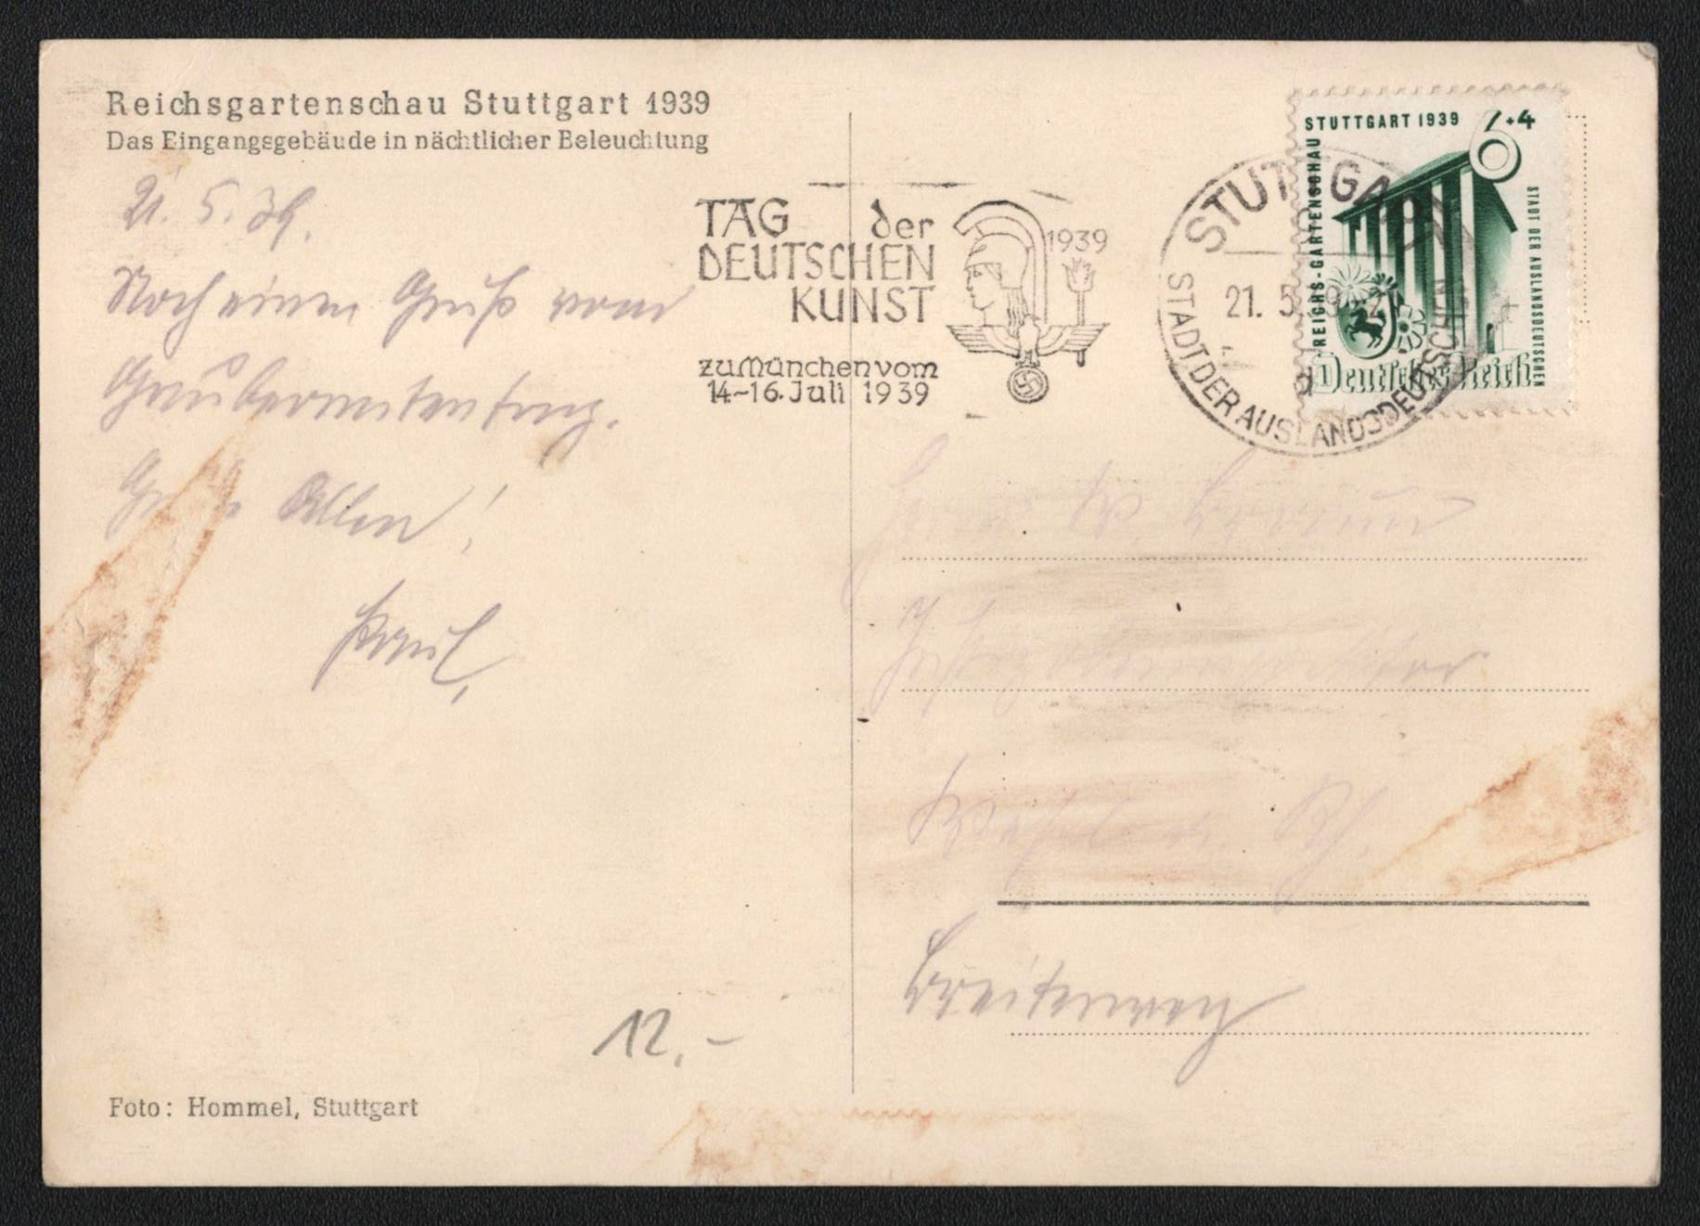 Reichsgartenschau Stuttgart 1939
Das Eingangsgebäude in nächtlicher Beleuchtung
21. 5. 39.
Noch einen Gruß vom
Gaubeamtentag.
Allen!
Paul.
TAG der
DEUTSCHEN
KUNST
zu München vom
14-16. Juli 1939
1939
STUTTGART
21. 5.
STADT DER AUSLANDSDEUTSCHEN
d
STUTTGART 1939
6+4
REICHS-GARTENSCHAU
STADT DER AUSLANDSDEUTSCHEN
Deutsches Reich
Braun
Breitenweg
12.-
Foto: Hommel, Stuttgart